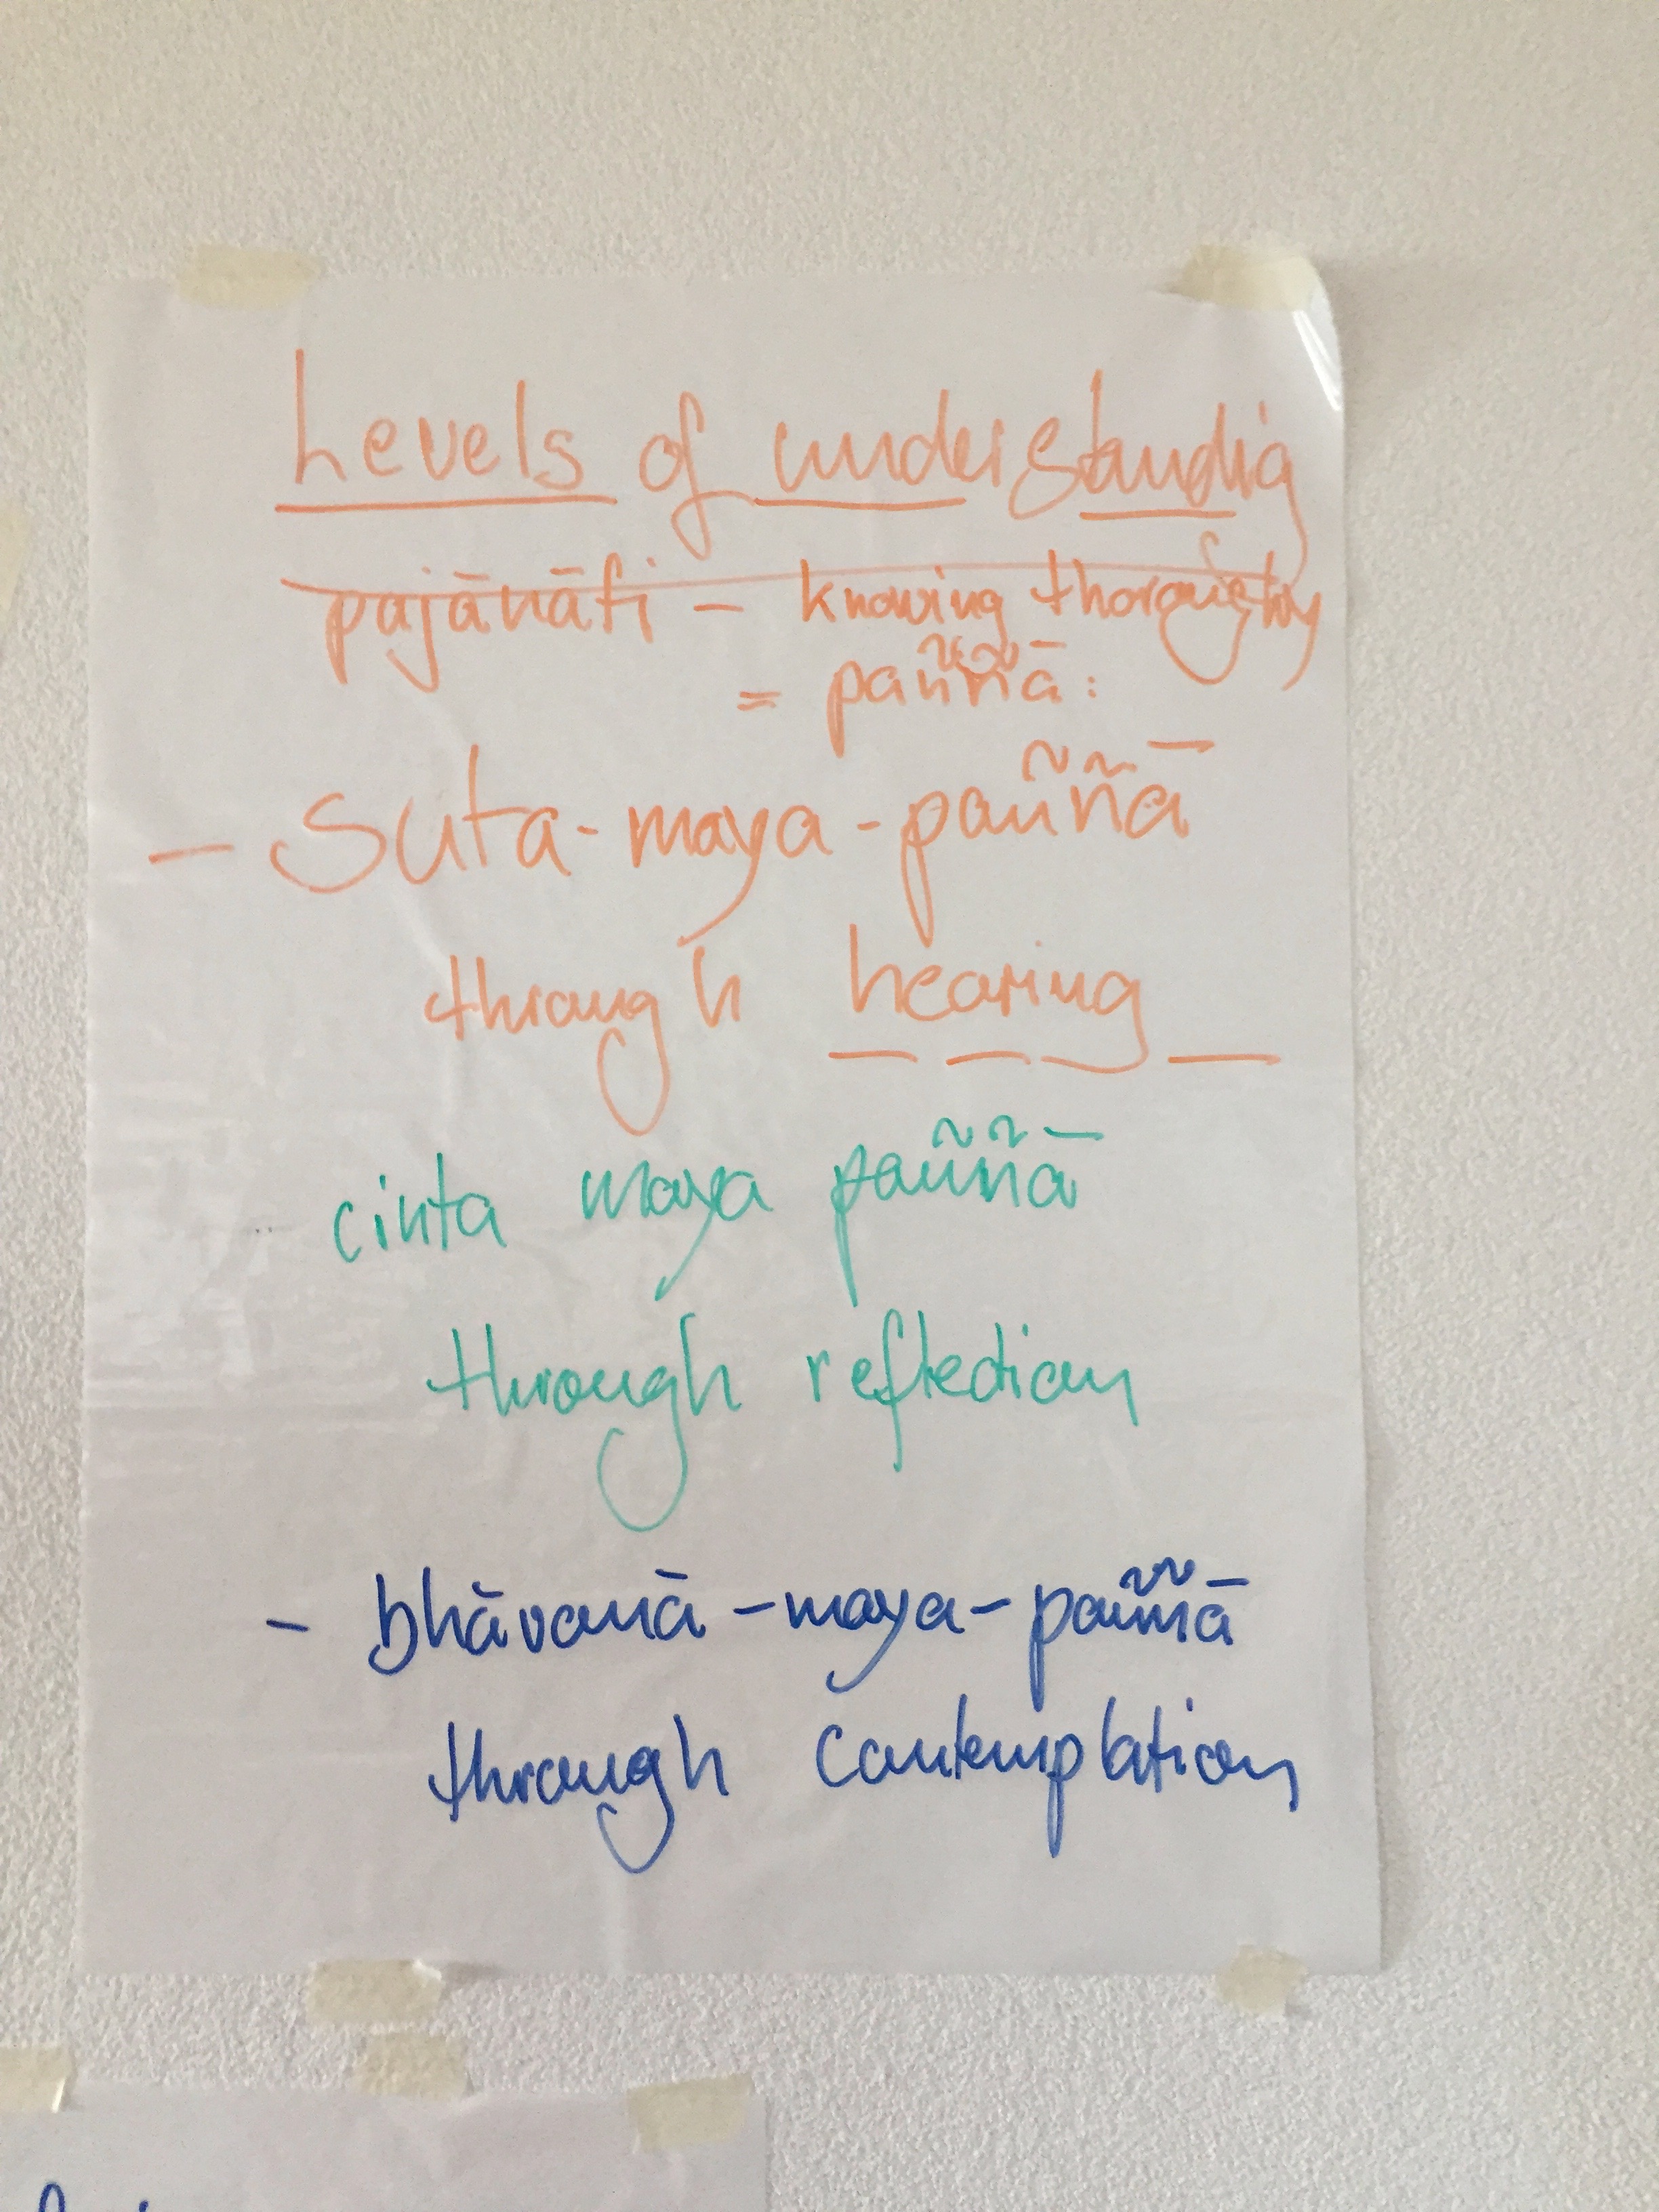 Levels of understandig
pajānāti - knowing thoroughly
= paññā:
- Suta-maya-paññā
through hearing
cinta maya paññā
through reflection
- bhāvanā-maya-paññā
through contemplation